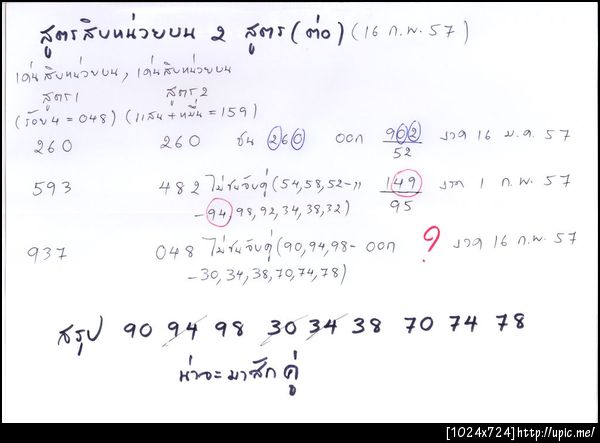 สูตรสิบหน่วยบน 2 สูตร (ต่อ) (16 ก.พ. 57)
เด่นสิบหน่วยบน, เด่นสิบหน่วยบน
สูตร 1 สูตร 2
(ร้อย 4 = 048) (แสน + หมื่น = 159)
260 260 ชน 260 ออก 902 งวด 16 ม.ค. 57
52
593 482 ไม่ชนจับคู่ (54,58,52- 149 งวด 1 ก.พ. 57
-94,98,92,34,38,32) 95
937 048 ไม่ชนจับคู่ (90,94,98- ออก ? งวด 16 ก.พ. 57
-30,34,38,70,74,78)
สรุป 90 94 98 30 34 38 70 74 78
น่าจะมาสักคู่
[1024x724]http://upic.me/